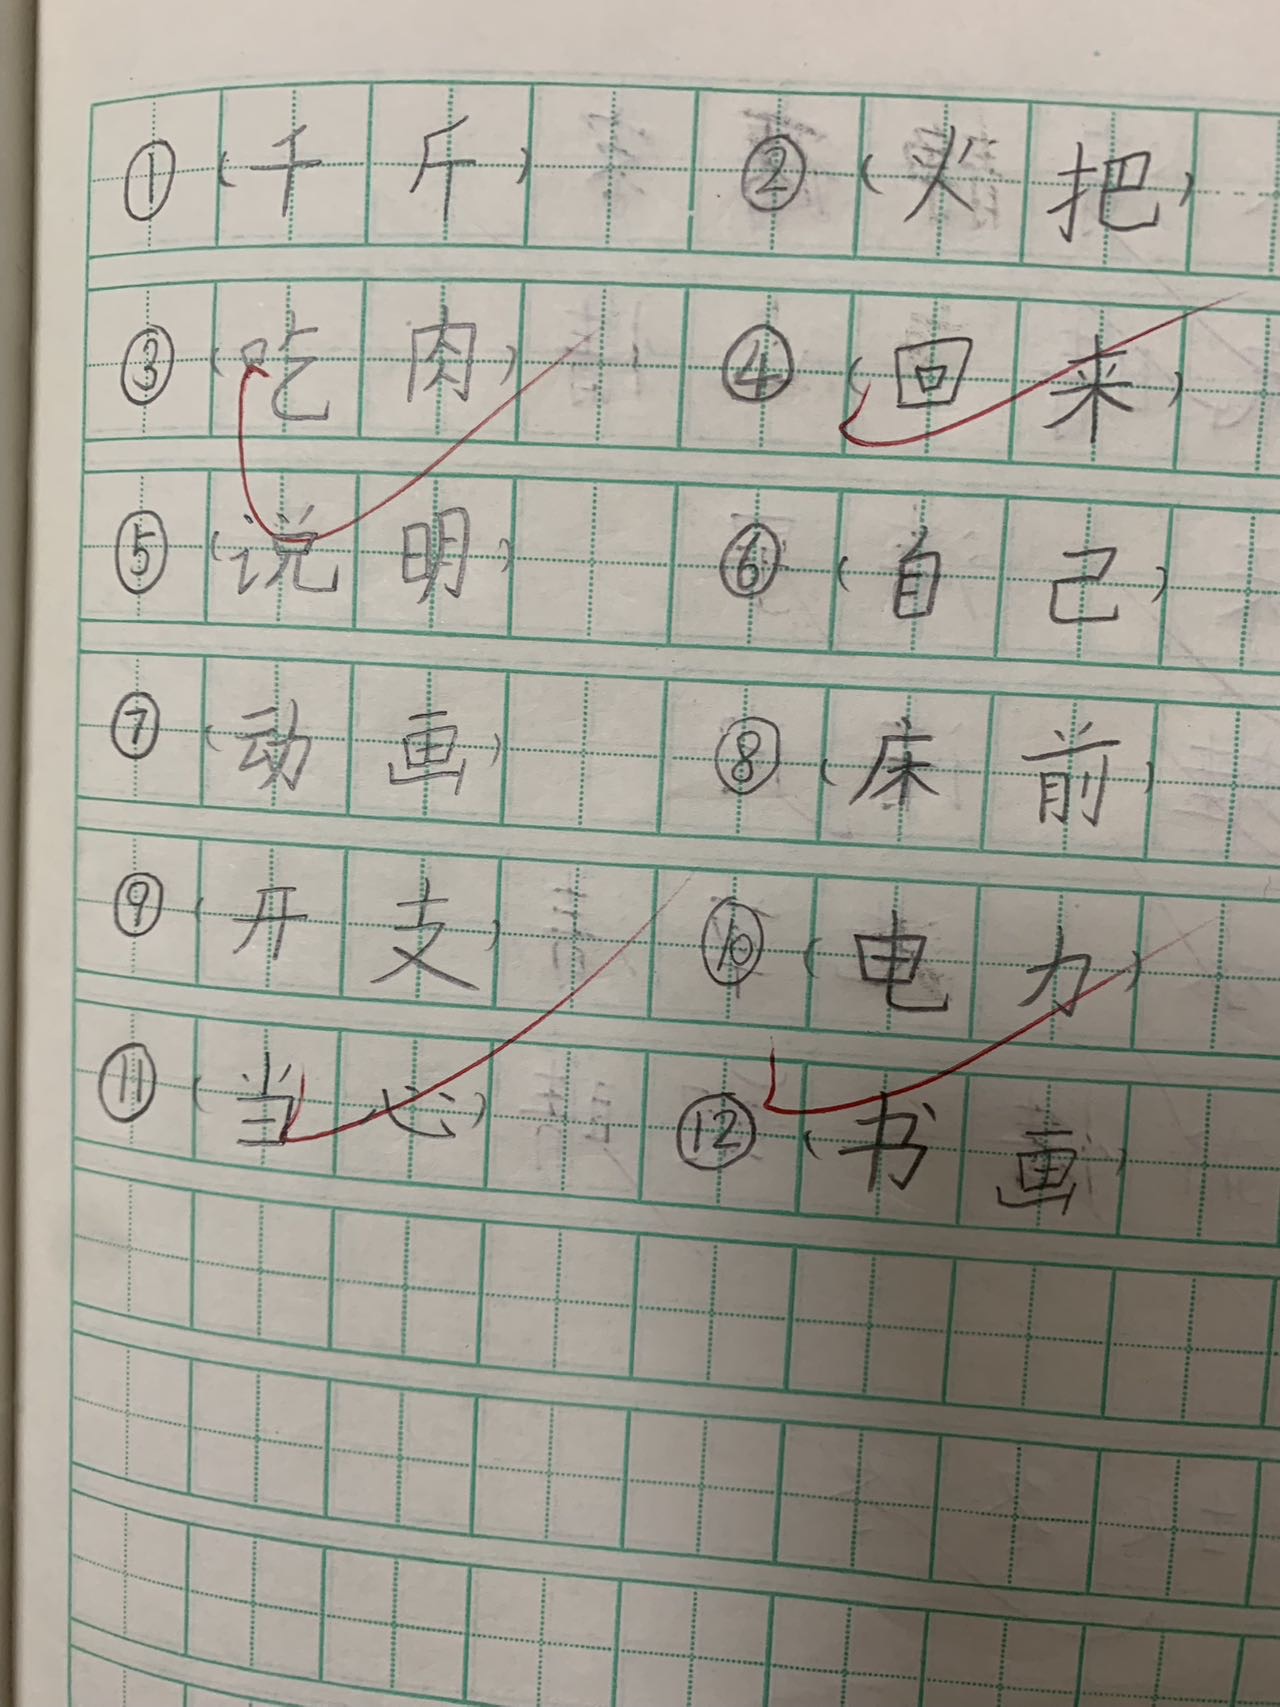 ①（千斤） ②（火把）
③（吃肉） ④（回来）
⑤（说明） ⑥（自己）
⑦（动画） ⑧（床前）
⑨（开支） ⑩（电力）
⑪（当心） ⑫（书画）